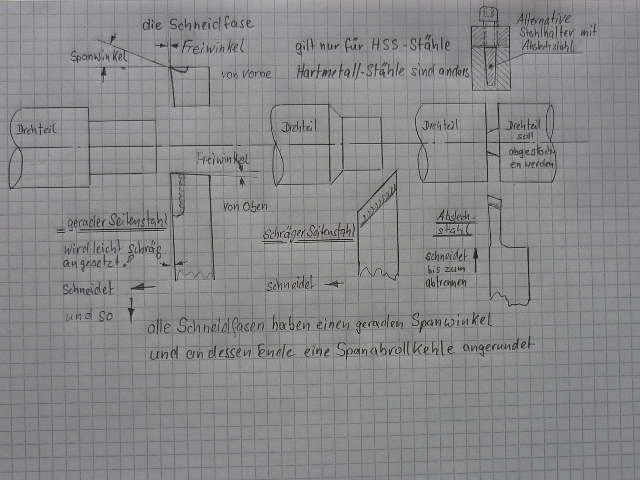 die Schneidfase
Freiwinkel
Spanwinkel
von vorne
gilt nur für HSS-Stähle
Hartmetall-Stähle sind anders
Alternative
Stahlhalter mit
Abstechstahl
Drehteil
Freiwinkel
von Oben
gerader Seitenstahl
wird leicht schräg
angesetzt
Schneidet
und so
Drehteil
Schräger Seitenstahl
schneidet
Drehteil
Drehteil
soll
abgestoch
en werden
Abstech-
stahl
schneidet
bis zum
abtrennen
alle Schneidfasen haben einen geraden Spanwinkel
und an dessen Ende eine Spanabrollkehle angerundet